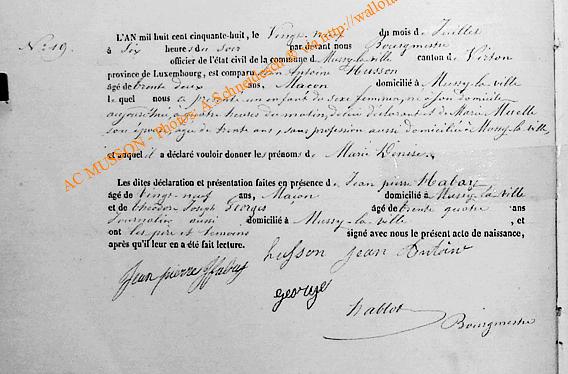 No: 19.
L'AN mil huit cent cinquante-huit, le Vingt neuf du mois de Juillet
à six heures du soir par devant nous Bourgmestre
officier de l'état civil de la commune d Mussy-la-ville canton de Virton
province de Luxembourg, est comparu Jean Antoine Husson
âgé de trente deux ans, Maçon domicilié à Mussy-la-ville
lequel nous a présenté un enfant de sexe féminin, né à son domicile
aujourd'hui à quatre heures du matin, de lui déclarant et de Marie
son épouse, âgée de trente ans, sans profession aussi domiciliée à Mussy-la-ville
et auquel il a déclaré vouloir donner les prénoms de Marie Denise
Les dites déclaration et présentation faites en présence de Jean pierre Habay
âgé de vingt-neuf ans, Maçon domicilié à Mussy-la-ville
et de theodore Joseph Georges âgé de trente quatre ans
Journalier aussi domicilié à Mussy-la-ville , et
ont les père et témoins signé avec nous le présent acte de naissance,
après qu'il leur en a été fait lecture.
husson jean Antoine
Jean pierre Habay
george
hallot
Bourgmestre
AC MUSSON - Photos: A Schneidesch @ via http://wallonia